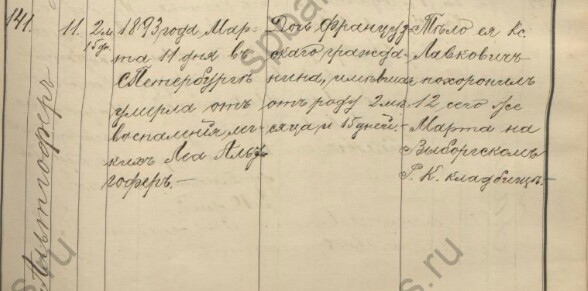 141.
Альтгоферъ
11.
2 м.
15 дн.
1893 года Мар-
та 11 дня въ
С Петербургѣ
умерла отъ
воспаленія лег-
кихъ Леа Альт-
гоферъ.—
Дочь Француз-
скаго гражда-
нина, имѣвшая
отъ роду 2 мѣ-
сяца и 15 дней.—
Тѣло ея Кс.
Лавковичъ
похоронилъ
12 сего же
Марта на
Выборгскомъ
Р. К. кладбищѣ.—